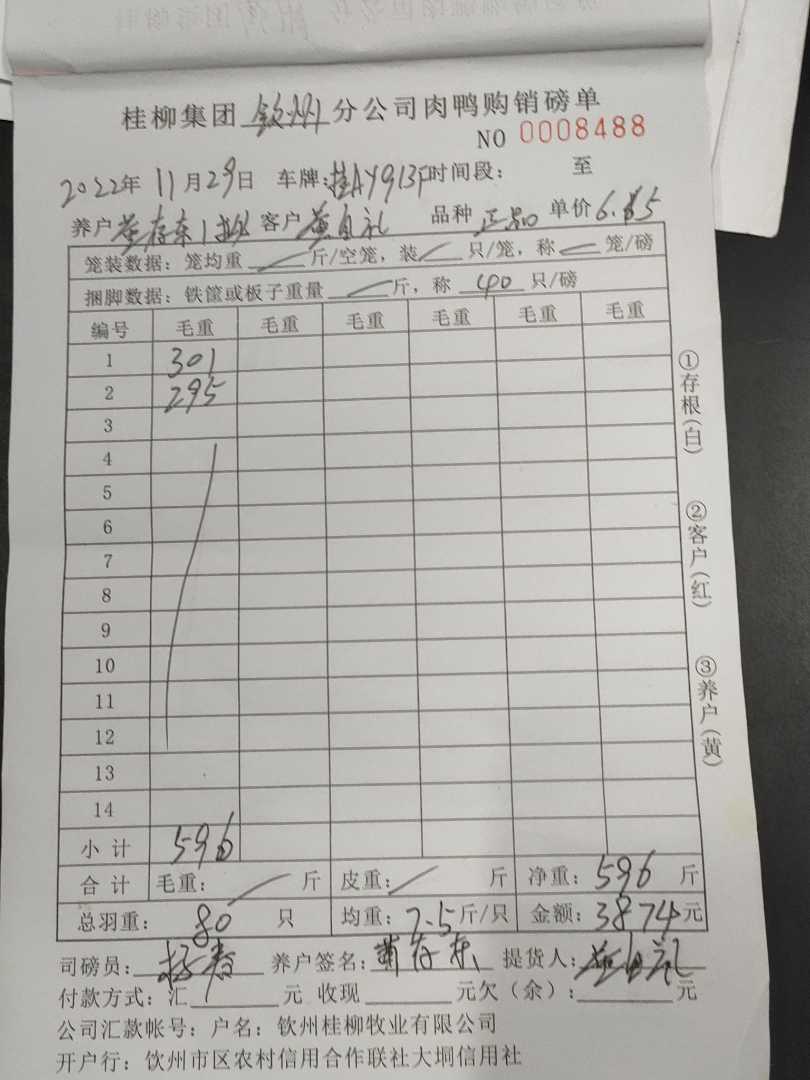 桂柳集团 钦州 分公司肉鸭购销磅单
NO 0008488
2022年 11月29日 车牌:桂AY913F时间段: 至
养户 存东 客户 黄自礼 品种 正品 单价6.
笼装数据: 笼均重 斤/空笼, 装 只/笼, 称 笼/磅
捆脚数据: 铁筐或板子重量 斤, 称 40 只/磅
编号 毛重 毛重 毛重 毛重 毛重 毛重
1 301
2 295
3
4
5
6
7
8
9
10
11
12
13
14
小 计 596
合 计 毛重: 斤 皮重: 斤 净重: 596 斤
总羽重: 80 只 均重: 7.5斤/只 金额: 3874元
司磅员: 养户签名: 存东 提货人: 黄自礼
付款方式: 汇 元 收现 元欠(余): 元
公司汇款帐号: 户名: 钦州桂柳牧业有限公司
开户行: 钦州市区农村信用合作联社大垌信用社
①存根(白)
②客户(红)
③养户(黄)